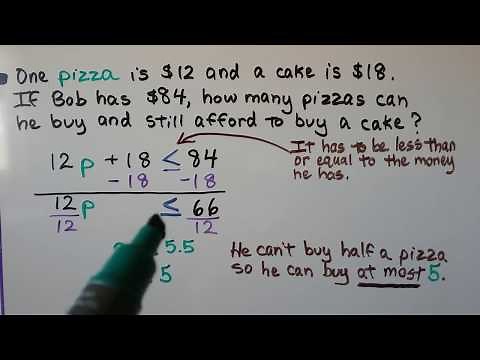 One pizza is $12 and a cake is $18.
If Bob has $84, how many pizzas can
he buy and still afford to buy a cake?
12p + 18 ≤ 84
- 18 -18
12p ≤ 66
12 12
5.5
5
It has to be less than
or equal to the money
he has.
He can't buy half a pizza
so he can buy at most 5.